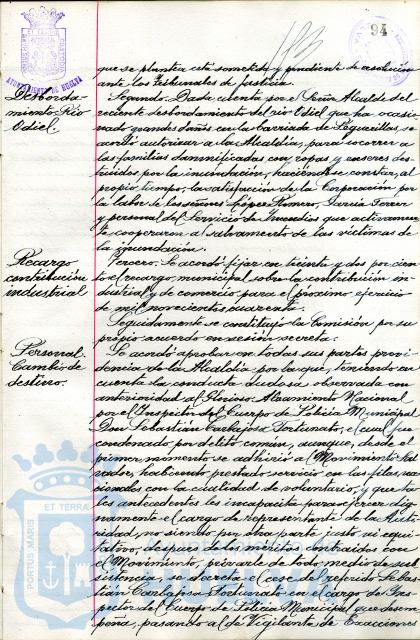 94
AYUNTAMIENTO DE HUELVA
que se plantea está sometida y pendiente de resolución
ante los Tribunales de Justicia
Desborda-
miento Río
Odiel.
Segundo. Dada cuenta por el Señor Alcalde del
reciente desbordamiento del río Odiel que ha ocasio-
nado grandes daños en la barriada de Peguerillas, se
acordó autorizar a la Alcaldía, para socorrer a
las familias damnificadas con ropas y enseres des-
truidos por la inundación, haciéndose constar, al
propio tiempo, la satisfacción de la Corporación por
la labor de los señores López Romero, García Ferrer
y personal del Servicio de Incendios que activamen-
te cooperaron al salvamento de las víctimas de
la inundación.
Recargo
contribución
industrial
Tercero. Se acordó fijar en treinta y dos por cien-
to el recargo municipal sobre la contribución in-
dustrial y de comercio para el próximo ejercicio
de mil novecientos cuarenta.
Seguidamente se constituyó la Comisión por su
propio acuerdo en sesión secreta.
Personal.
Cambio de
destino.
Se acordó aprobar en todas sus partes provi-
dencia de la Alcaldía por la que, teniendo en
cuenta la conducta dudosa observada con
anterioridad al Glorioso Alzamiento Nacional
por el Inspector del Cuerpo de Policía Municipal
Don Sebastián Carbajosa Fortunato, el cual fue
condenado por delito común, aunque, desde el
primer momento se adhirió al Movimiento Sal-
vador, habiendo prestado servicio en las filas na-
cionales con la cualidad de voluntario, y que ta-
les antecedentes les incapacita para ejercer dig-
namente el cargo de representante de la Auto-
ridad, no siendo por otra parte justo ni equi-
tativo, después de los méritos contraidos con
el Movimiento, privarle de todo medio de sub-
sistencia, se decreta el cese del referido Sebas-
tián Carbajosa Fortunato en el cargo de Ins-
pector del Cuerpo de Policía Municipal que desem-
peña, pasando al de Vigilante de Exacciones
PORTUS MARIS ET TERRAE
Ayuntamiento de